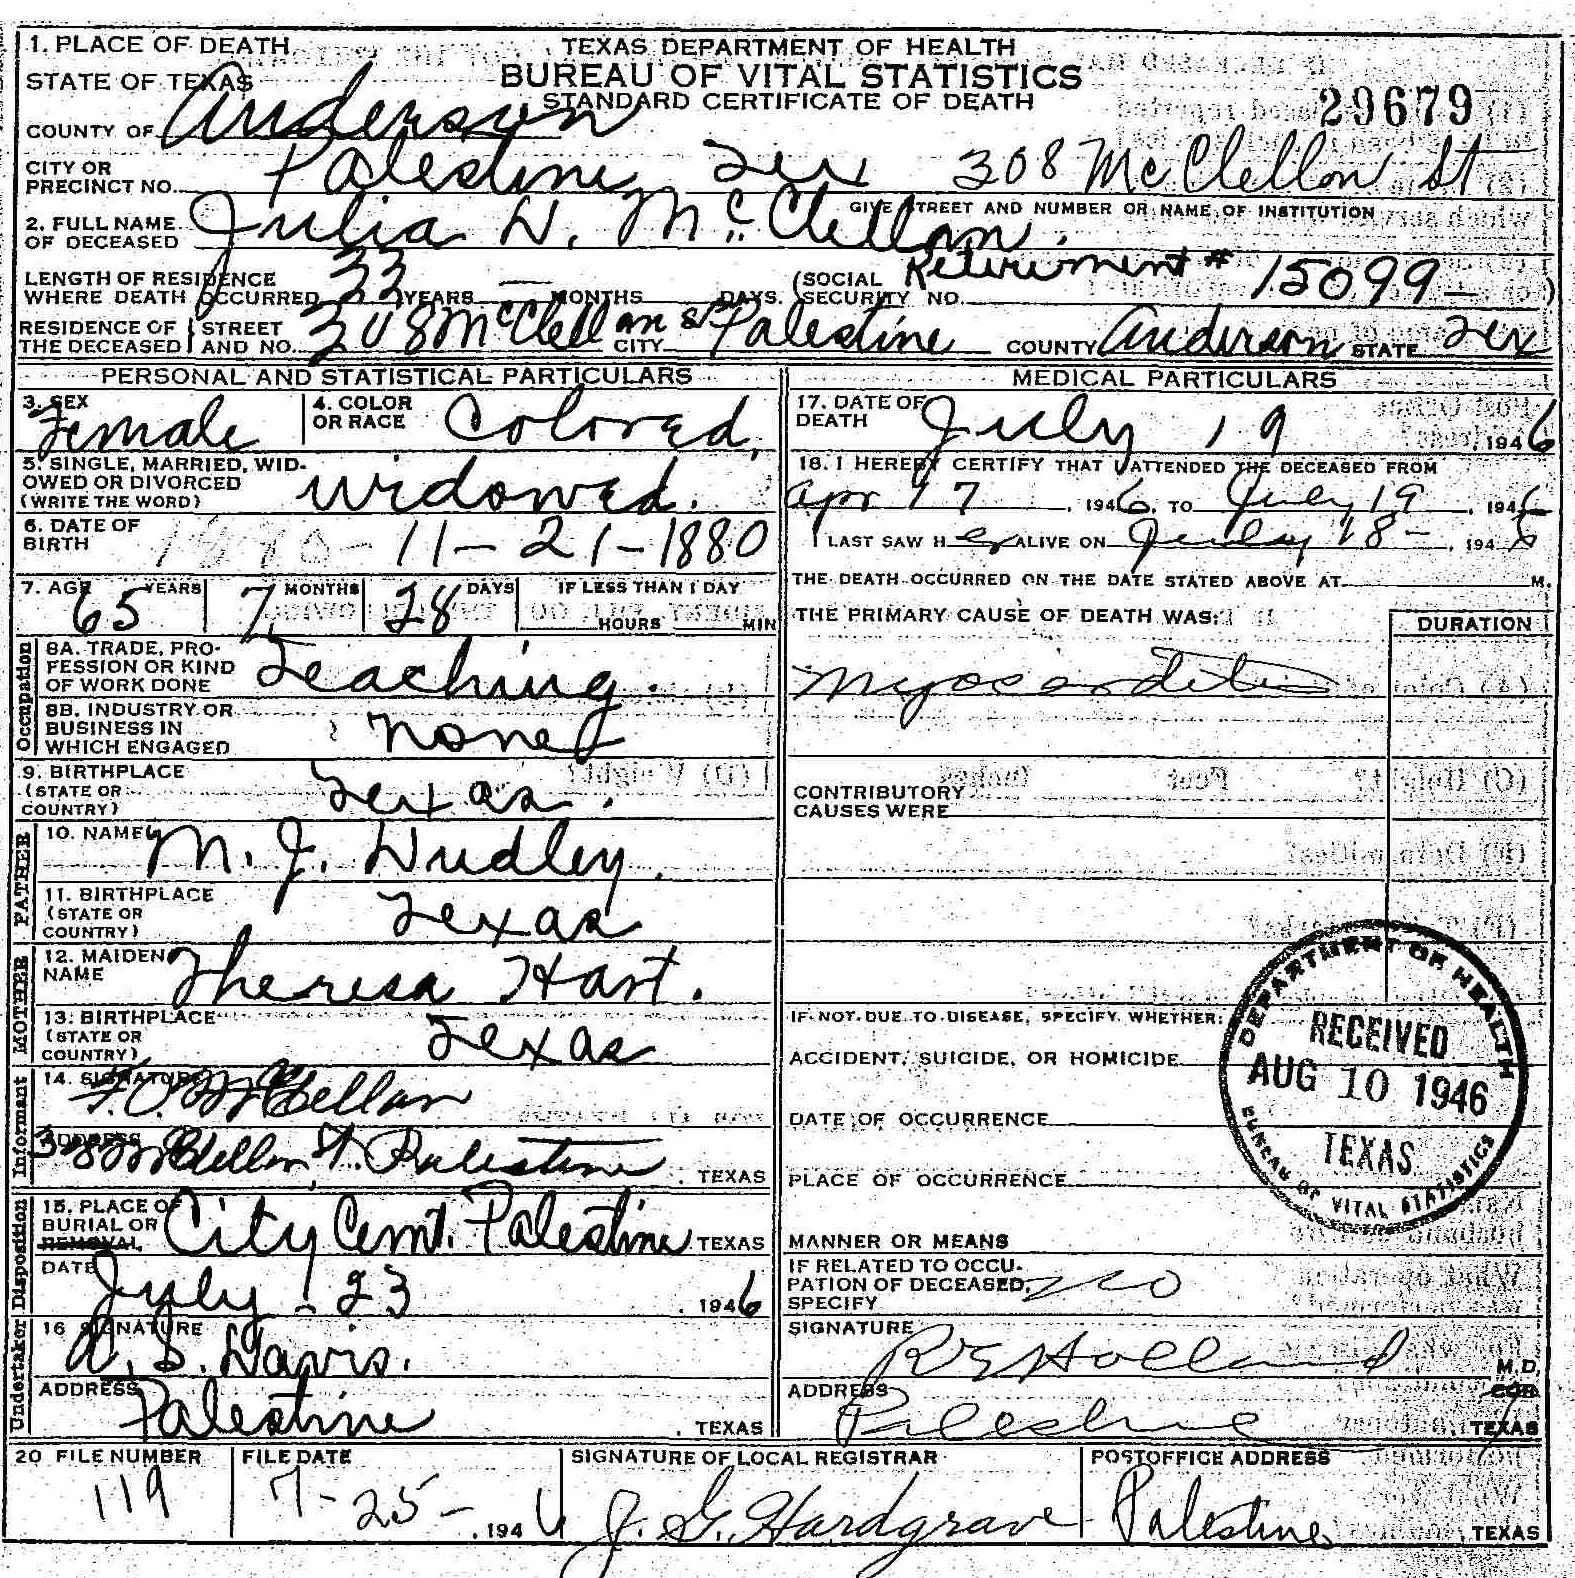 1. PLACE OF DEATH
STATE OF TEXAS
TEXAS DEPARTMENT OF HEALTH
BUREAU OF VITAL STATISTICS
STANDARD CERTIFICATE OF DEATH
29679
COUNTY OF Anderson
CITY OR PRECINCT NO. Palestine Tex 308 McClellon St
GIVE STREET AND NUMBER OR NAME OF INSTITUTION
2. FULL NAME OF DECEASED Julia D. McClellan.
LENGTH OF RESIDENCE WHERE DEATH OCCURRED 33 YEARS — MONTHS DAYS. (SOCIAL SECURITY NO. Retirement # 15099 – )
RESIDENCE OF THE DECEASED STREET AND NO. 308 McClellan St CITY Palestine COUNTY Anderson STATE Tex
PERSONAL AND STATISTICAL PARTICULARS
3. SEX Female 4. COLOR OR RACE Colored.
5. SINGLE, MARRIED, WIDOWED OR DIVORCED (WRITE THE WORD) Widowed.
6. DATE OF BIRTH 11-21-1880
7. AGE 65 YEARS 7 MONTHS 28 DAYS IF LESS THAN 1 DAY HOURS MIN
Occupation
8A. TRADE, PROFESSION OR KIND OF WORK DONE Teaching.
8B. INDUSTRY OR BUSINESS IN WHICH ENGAGED None
9. BIRTHPLACE (STATE OR COUNTRY) Texas.
FATHER
10. NAME M. J. Dudley.
11. BIRTHPLACE (STATE OR COUNTRY) Texas
MOTHER
12. MAIDEN NAME Theresa Hart.
13. BIRTHPLACE (STATE OR COUNTRY) Texas
Informant
14. SIGNATURE McClellan
ADDRESS 308 McClellan St. Palestine, TEXAS
Disposition
15. PLACE OF BURIAL OR REMOVAL City Cemt. Palestine TEXAS
DATE July 23, 1946
Undertaker
16 SIGNATURE A. S. Davis.
ADDRESS Palestine, TEXAS
MEDICAL PARTICULARS
17. DATE OF DEATH July 19 1946
18. I HEREBY CERTIFY THAT I ATTENDED THE DECEASED FROM
Apr 17, 1946, TO July 19, 1946
I LAST SAW HER ALIVE ON July 18 –, 1946
THE DEATH OCCURRED ON THE DATE STATED ABOVE AT M.
THE PRIMARY CAUSE OF DEATH WAS: DURATION
Myocarditis
CONTRIBUTORY CAUSES WERE
IF NOT DUE TO DISEASE, SPECIFY WHETHER:
ACCIDENT, SUICIDE, OR HOMICIDE
DATE OF OCCURRENCE
PLACE OF OCCURRENCE
MANNER OR MEANS
IF RELATED TO OCCUPATION OF DECEASED, SPECIFY no
SIGNATURE R E Holland M.D.
COR.
ADDRESS Palestine TEXAS
DEPARTMENT OF HEALTH
RECEIVED
AUG 10 1946
TEXAS
BUREAU OF VITAL STATISTICS
20 FILE NUMBER 119
FILE DATE 7-25-, 1946
SIGNATURE OF LOCAL REGISTRAR J. G. Hardgrave
POSTOFFICE ADDRESS Palestine, TEXAS